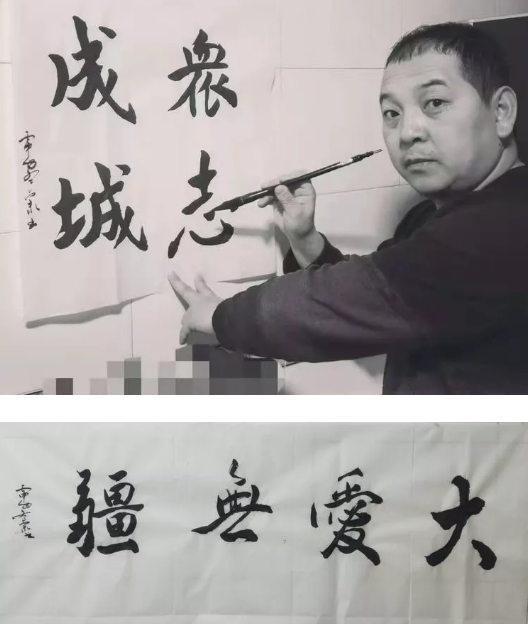 衆志
成城
大愛無疆